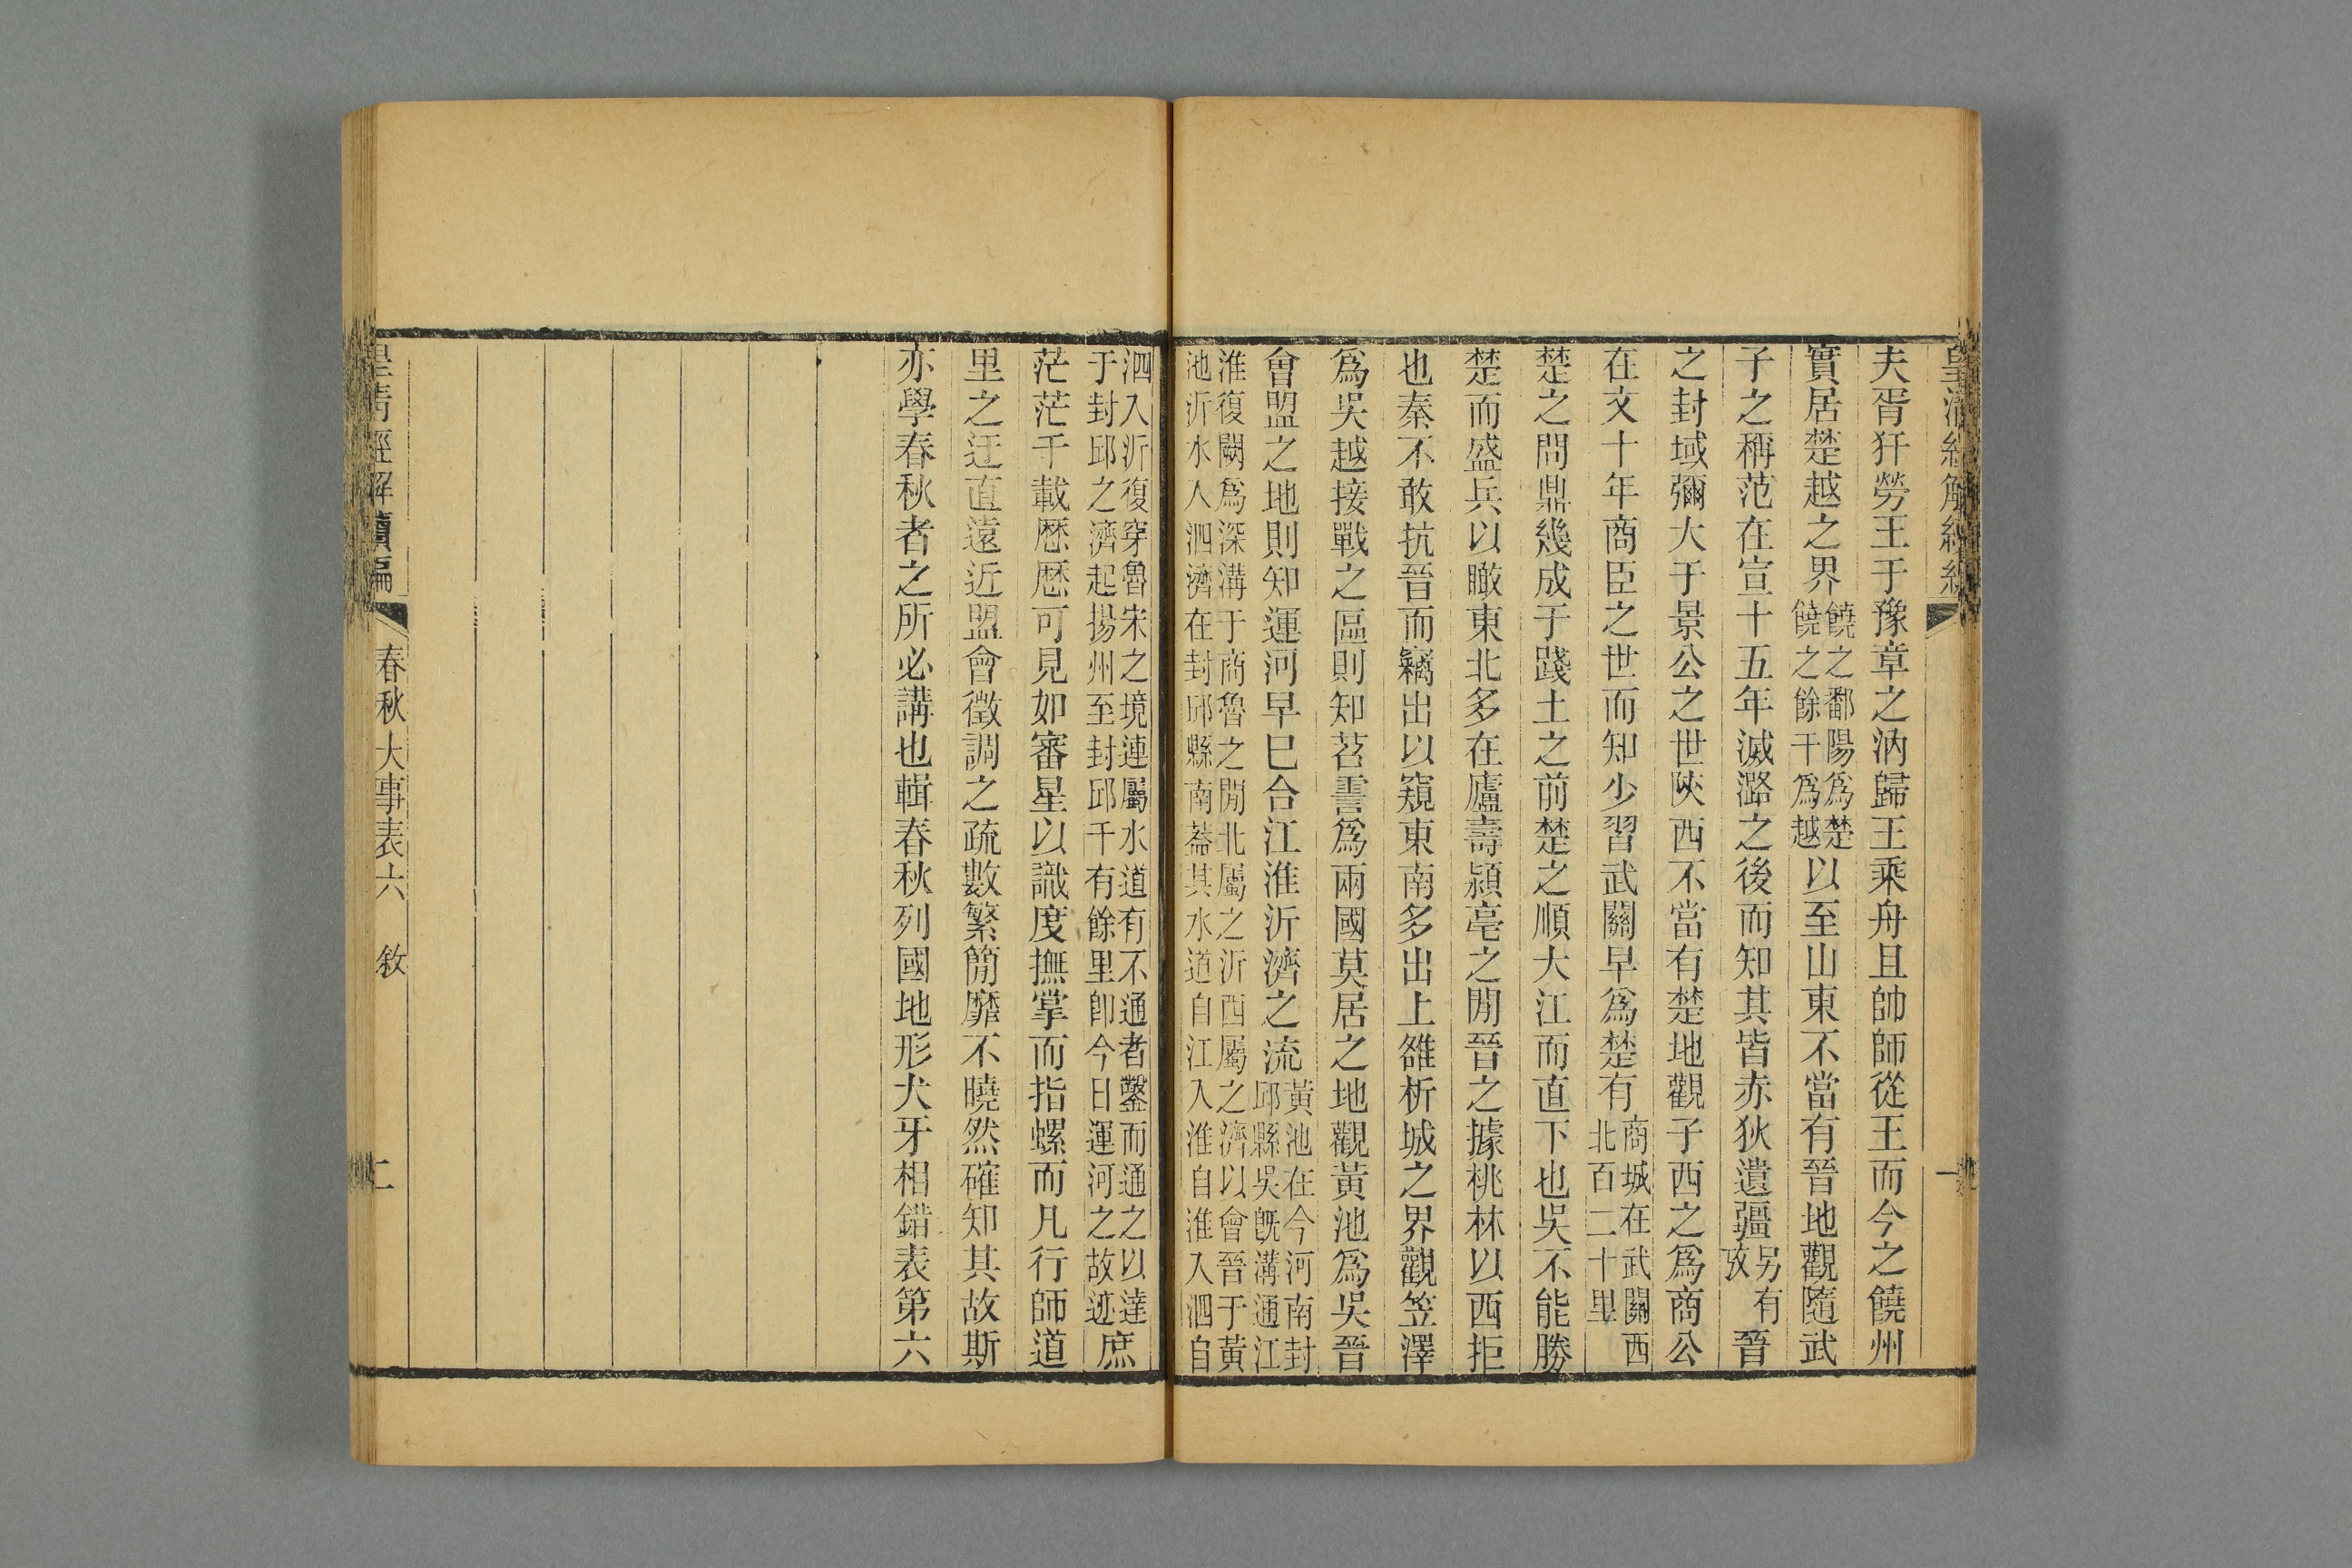 夫胥犴勞王于豫章之汭歸王乘舟且帥師從王而今之饒州
實居楚越之界饒之鄱陽爲楚饒之餘干爲越以至山東不當有晉地觀隨武
子之稱范在宣十五年滅潞之後而知其皆赤狄遺疆另有攷晉
之封域彌大于景公之世陝西不當有楚地觀子西之爲商公
在文十年商臣之世而知少習武關早爲楚有商城在武關西北百二十里
楚之問鼎幾成于踐土之前楚之順大江而直下也吳不能勝
楚而盛兵以瞰東北多在廬壽潁亳之閒晉之據桃林以西拒
也秦不敢抗晉而竊出以窺東南多出上雒析城之界觀笠澤
爲吳越接戰之區則知苕霅爲兩國莫居之地觀黃池爲吳晉
會盟之地則知運河早已合江淮沂濟之流黃池在今河南封邱縣吳旣溝通江
淮復闕爲深溝于商魯之閒北屬之沂西屬之濟以會晉于黃池沂水入泗濟在封邱縣南葢其水道自江入淮自淮入泗自
泗入沂復穿魯宋之境連屬水道有不通者鑿而通之以達于封邱之濟起揚州至封邱千有餘里卽今日運河之故迹庶
茫茫千載歷歷可見如審星以識度撫掌而指螺而凡行師道
里之迂直遠近盟會徵調之疏數繁簡靡不曉然確知其故斯
亦學春秋者之所必講也輯春秋列國地形犬牙相錯表第六
皇清經解續編
春秋大事表六 敘
二